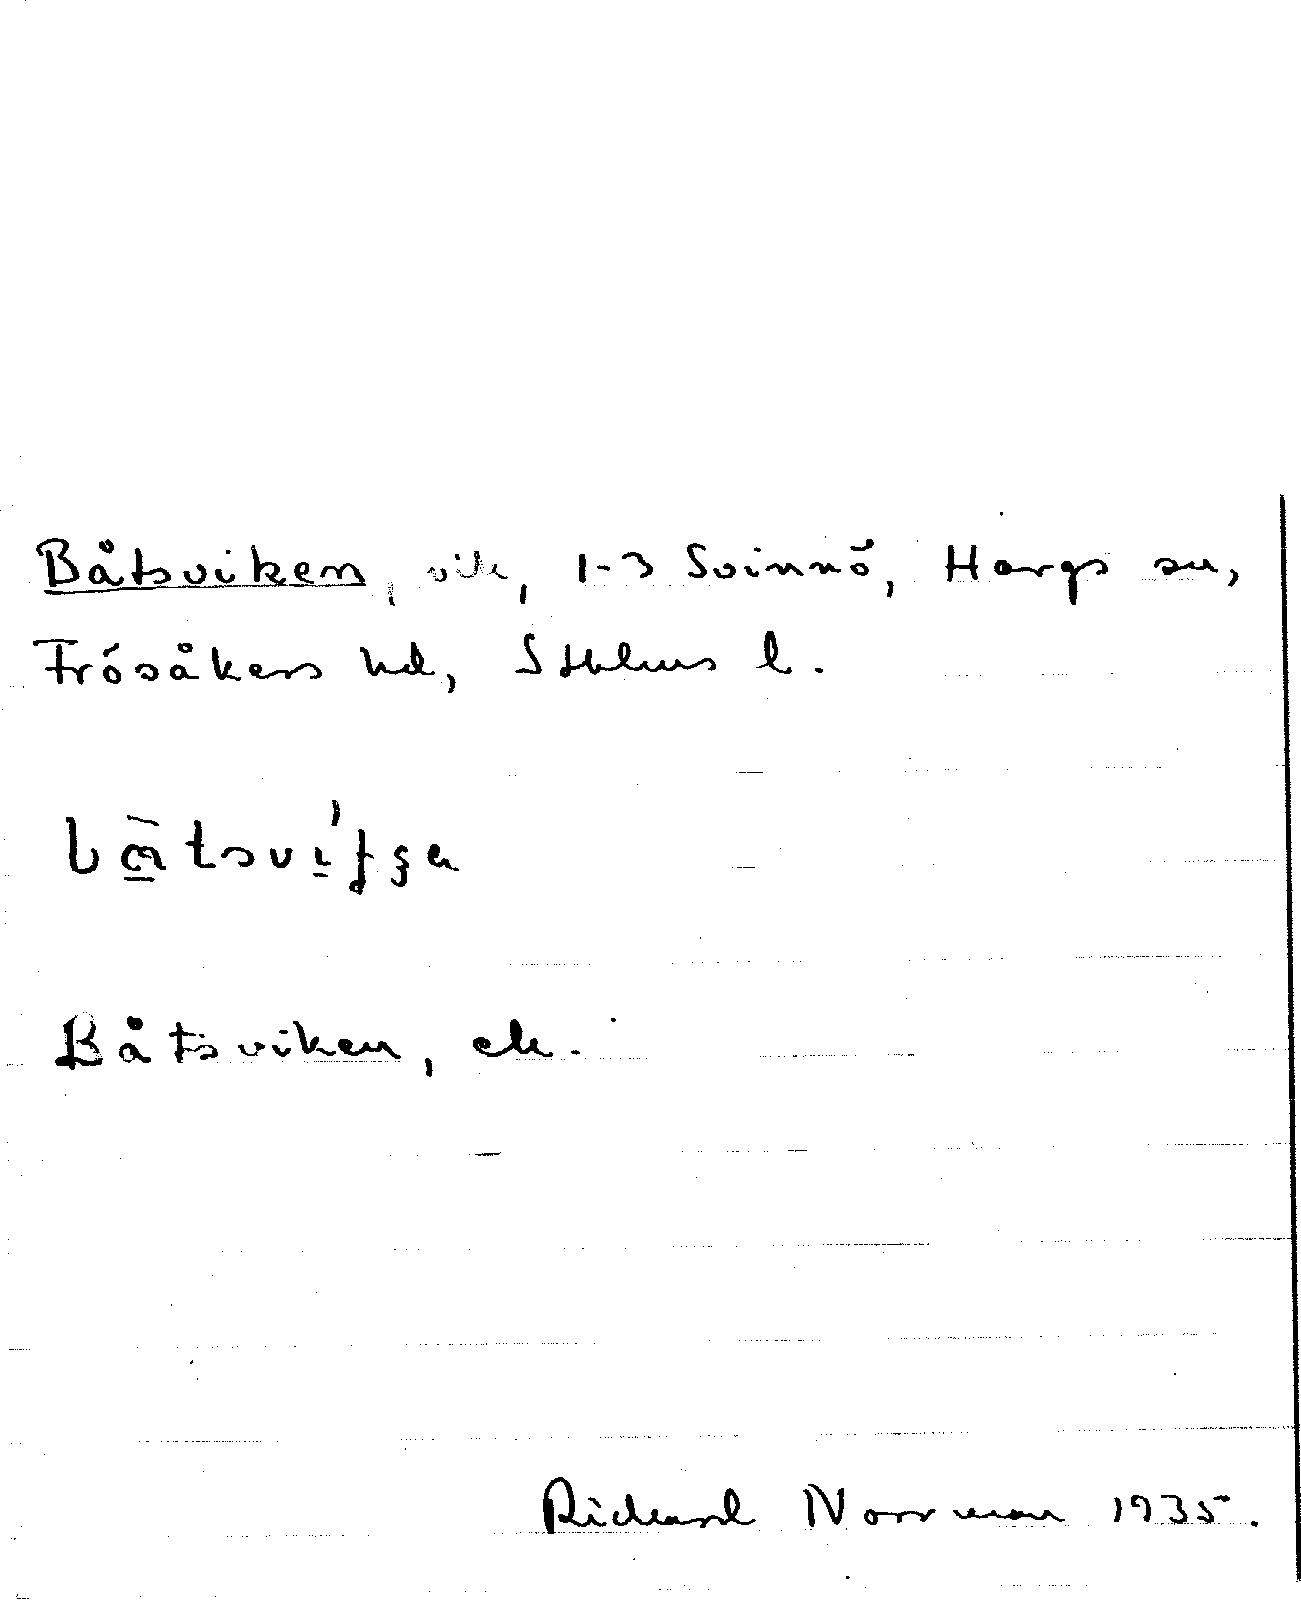 Båtsviken, vik, 1-3 Svinnö, Hargs sn,
Frösåkers hd, Sthlms l.
Båtsviken, ek.
Rickard Norrman 1935.